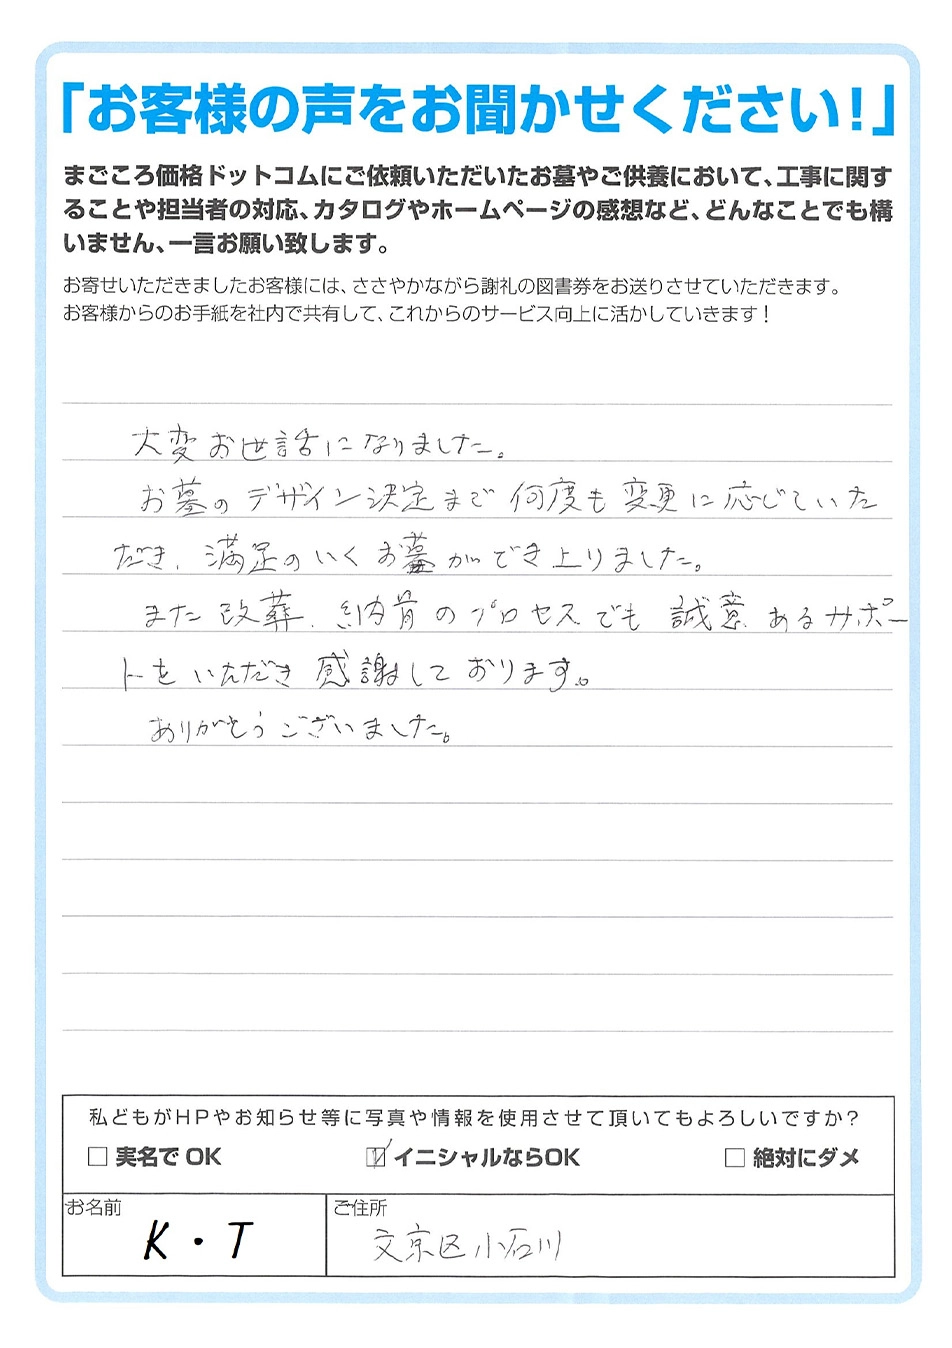 「お客様の声をお聞かせください！」
まごころ価格ドットコムにご依頼いただいたお墓やご供養において、工事に関す
ることや担当者の対応、カタログやホームページの感想など、どんなことでも構
いません、一言お願い致します。
お寄せいただきましたお客様には、ささやかながら謝礼の図書券をお送りさせていただきます。
お客様からのお手紙を社内で共有して、これからのサービス向上に活かしていきます！
大変お世話になりました。
お墓のデザイン決定まで何度も変更に応じていた
だき、満足のいくお墓ができ上りました。
また改葬、納骨のプロセスでも誠意あるサポー
トをいただき感謝しております。
ありがとうございました。
私どもがHPやお知らせ等に写真や情報を使用させて頂いてもよろしいですか？
□ 実名で OK ☑ イニシャルならOK □ 絶対にダメ
お名前 ご住所
K・T 文京区小石川